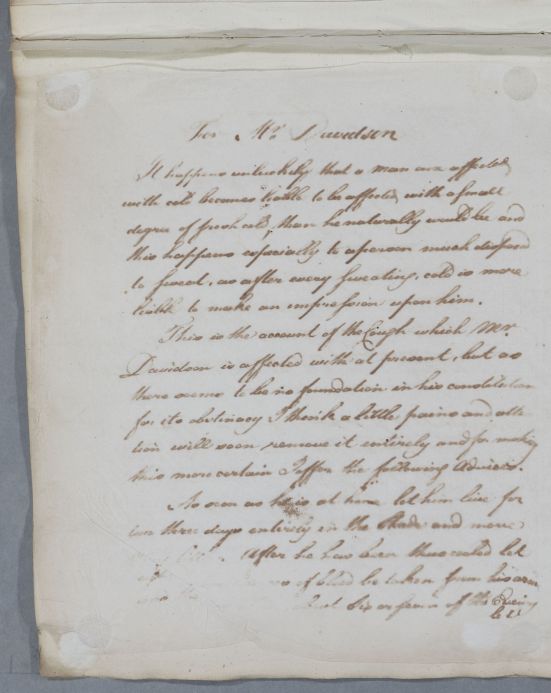 For Mr. Davidson
It happens unluckily that a man once affected
with cold becomes liable to be affected with a small
degree of fresh cold, than he naturally would be and
this happens especially to a person much disposed
to sweat, as after every sweating, cold is more
liable to make an impression upon him.
This is the account of the Cough which Mr.
Davidson is affected with at present, but as
there seems to be no foundation in his constitution
for its obstinacy I think a little pains and atten
tion will soon remove it entirely and for making
this more certain I offer the following advices.
As soon as he is at home let him live for
two three days entirely in the shade and
After he has been thus cooled let
of blood be taken from his arm
Six or seven of the